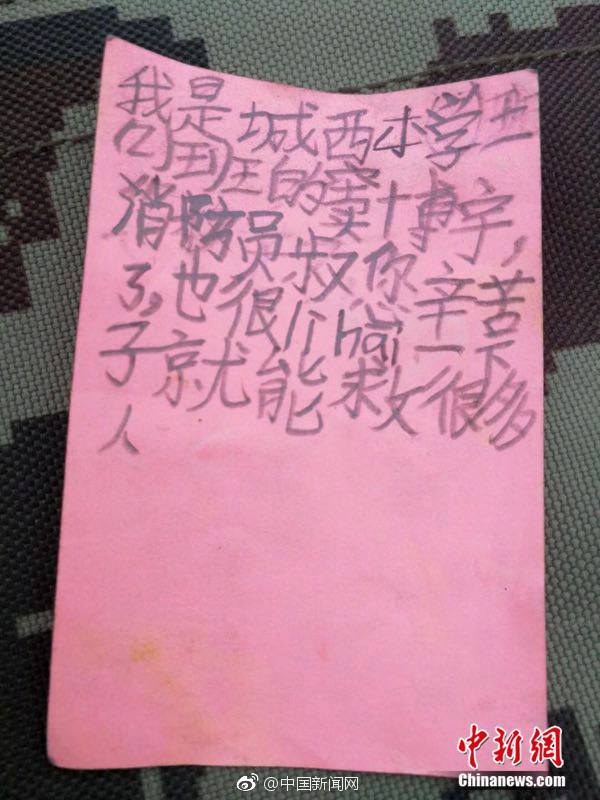 我是城西小学
班的窦博宇,
消防员叔你辛苦
了,也很li hai一下
子就能救很多
人
@中国新闻网
中新网
Chinanews.com